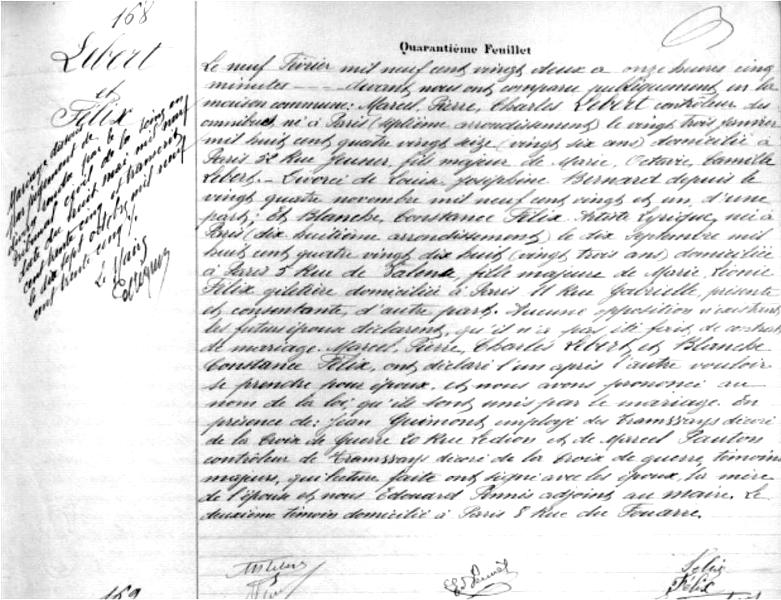 168
Quarantième Feuillet
Lebert
et
Félix
Mariage dissous
par jugement de
rendu par le
tribunal civil de la Seine en
date du huit mai mil neuf
cent trente cinq et transcrit
le dix sept octobre mil neuf
cent trente cinq ./.
Le Maire
Le neuf Février mil neuf cent vingt deux a onze heures cinq
minutes ——— devant nous ont comparu publiquement en la
maison commune: Marcel, Pierre, Charles Lebert contrôleur des
omnibus, né à Paris (septième arrondissement) le vingt trois janvier
mil huit cent quatre vingt seize (vingt six ans) domicilié à
Paris 52 Rue fils majeur de Marie, Octavie, Camille
Lebert. – Divorcé de Louise Joséphine Bernard depuis le
vingt quatre novembre mil neuf cent vingt et un, d'une
part; Et Blanche, Constance Félix. Artiste Lyrique, née à
Paris (dix huitième arrondissement) le dix septembre mil
huit cent quatre vingt dix huit (vingt trois ans) domiciliée
à Paris 5 Rue de fille majeure de Marie, Léonie
Félix giletière domiciliée à Paris 11 Rue Gabrielle, présente
et consentante, d'autre part. Aucune opposition n'existant
les futurs époux déclarent, qu'il n'a pas été fait de contrat
de mariage. Marcel, Pierre, Charles Lebert et Blanche
Constance Félix, ont déclaré l'un après l'autre vouloir
se prendre pour époux, et nous avons prononcé au
nom de la loi, qu'ils sont unis par le mariage. En
présence de: Jean Guimont employé des tramways décoré
de la Croix de Guerre 20 Rue Ledion et de Marcel Paulon
contrôleur de tramways décoré de la Croix de guerre, témoins
majeurs, qui lecture faite ont signé avec les époux, la mère
de l'épouse et nous Edouard adjoint au maire. Le
deuxième témoin domicilié à Paris 8 Rue du Fouarre.
Félix
159